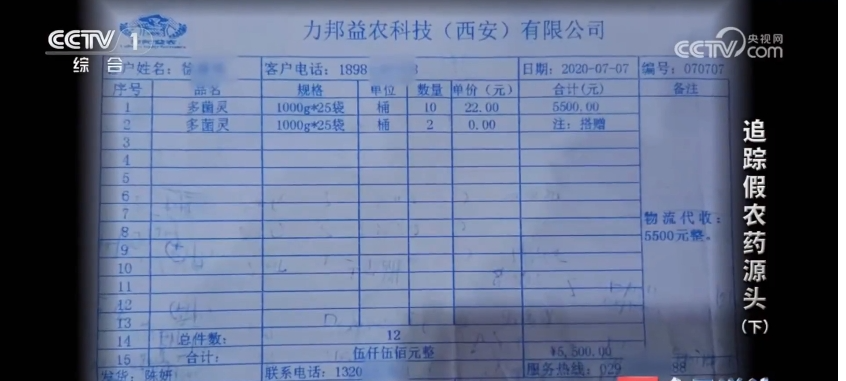 CCTV 1
综合
央视网
CCTV.com
力邦益农科技（西安）有限公司
户姓名： 客户电话：1898 日期：2020-07-07 编号：070707
序号 品名 规格 单位 数量 单价（元） 合计(元) 备注
1 多菌灵 1000g*25袋 桶 10 22.00 5500.00
2 多菌灵 1000g*25袋 桶 2 0.00 注：搭赠
3
4
5
6
7
8
9
10
11
12
13
物流代收：
5500元整。
14 总件数： 12
15 合计： 伍仟伍佰元整 ¥5,500.00
发货：陈妍 联系电话：1320 服务热线：029 88
追踪假农药源头
（下）